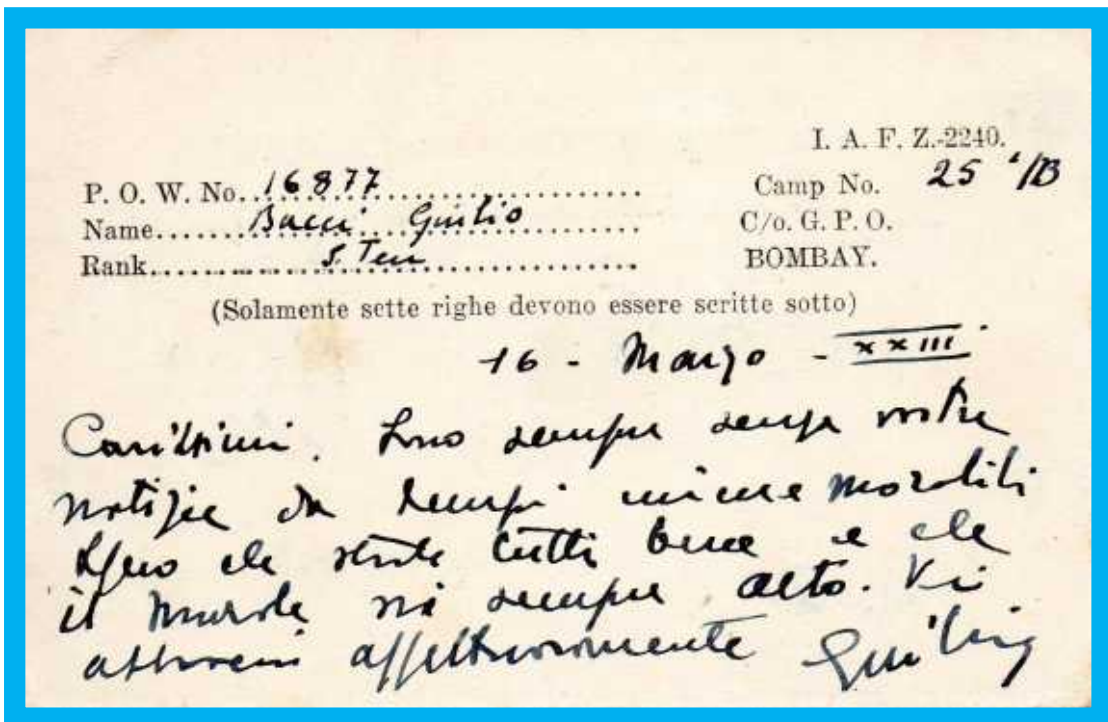 I. A. F. Z.-2240.
P. O. W. No. 16877
Camp No. 25 '/B
Name Bacci Giulio
C/o. G. P. O.
Rank S. Ten
BOMBAY.
(Solamente sette righe devono essere scritte sotto)
16 - Marzo - XXIII
Carissimi. Sono sempre senza vostre
notizie da tempi immemorabili
Spero che stiate tutti bene e che
il morale sia sempre alto. Vi
abbraccio affettuosamente Giulio